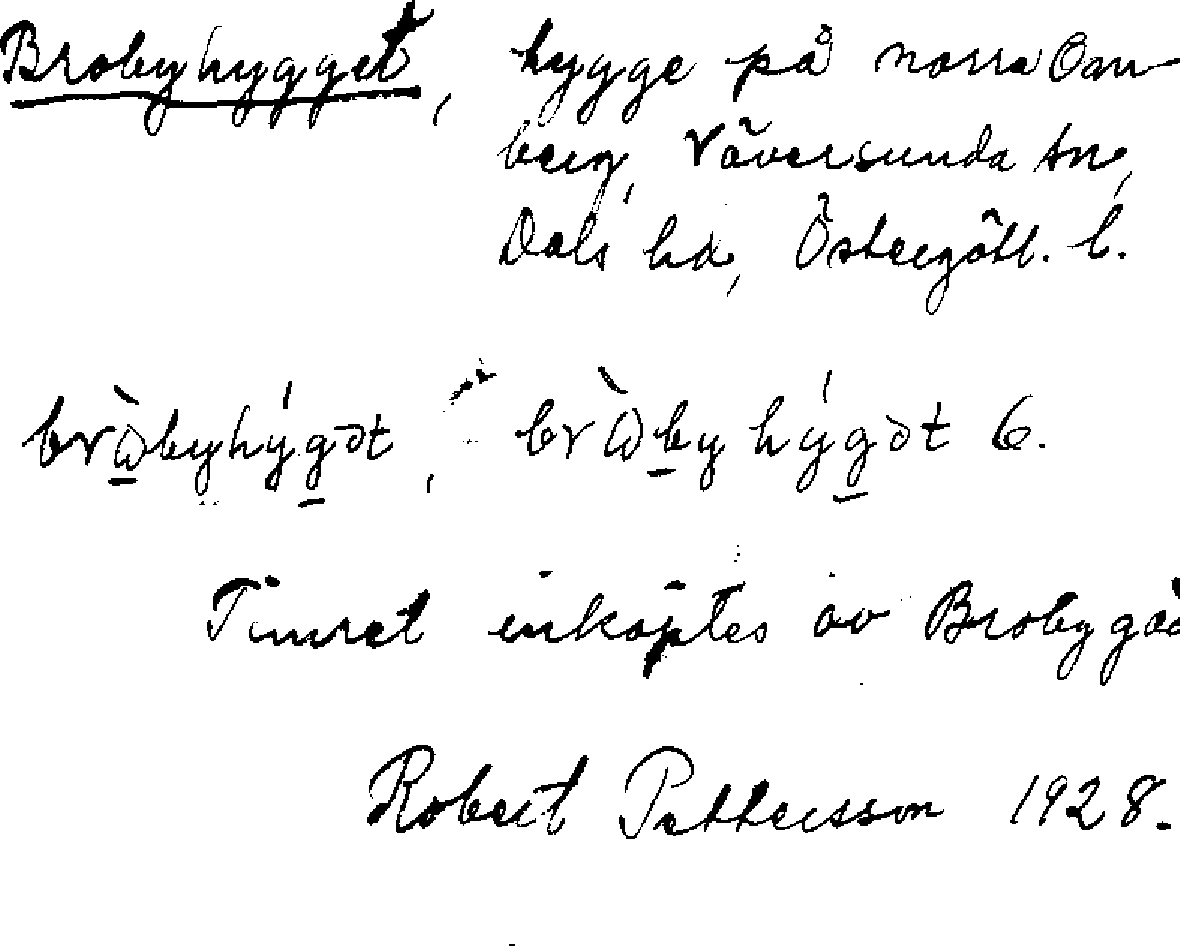 Brobyhygget, hygge på norra Om-
berg, Väversunda sn,
Dals hd, Östergötl. l.
bròbyhýgət, bròbyhýgət 6.
Timret inköptes av Brobygår
Robert Pettersson 1928.